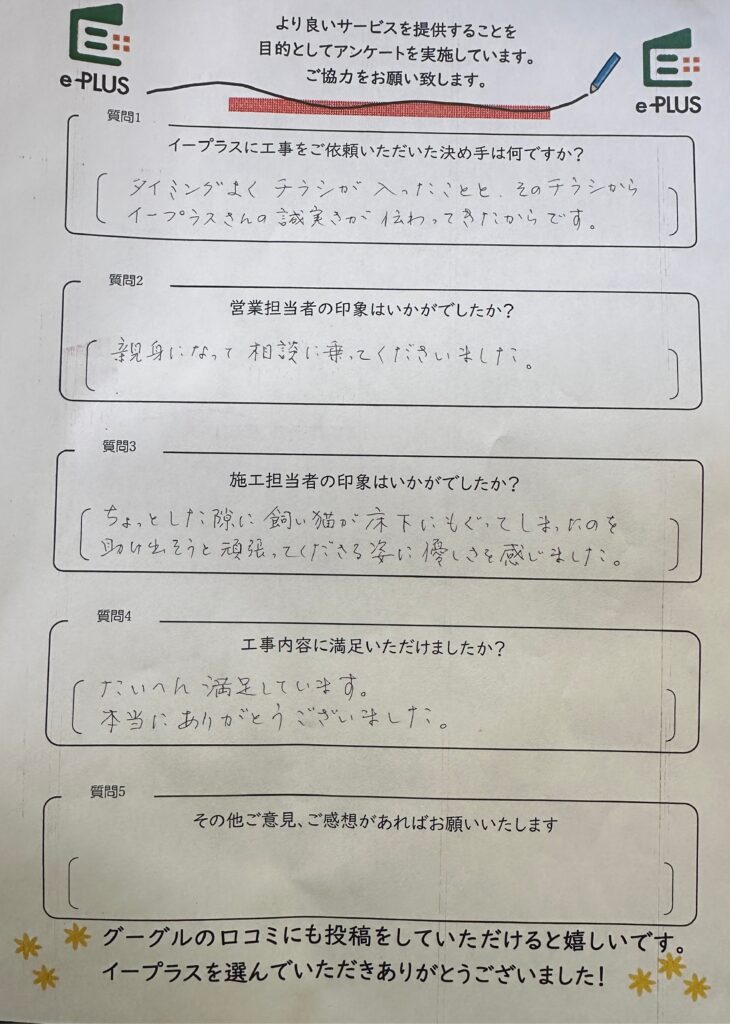 e-PLUS
より良いサービスを提供することを
目的としてアンケートを実施しています。
ご協力をお願い致します。
e-PLUS
質問1
イープラスに工事をご依頼いただいた決め手は何ですか？
タイミングよく チラシが 入ったことと、そのチラシから
イープラスさんの誠実さが 伝わってきたからです。
質問2
営業担当者の印象はいかがでしたか？
親身になって 相談に乗ってくださいました。
質問3
施工担当者の印象はいかがでしたか？
ちょっとした隙に 飼い猫が 床下にもぐってしまったのを
助け出そうと頑張ってくださる姿に優しさを感じました。
質問4
工事内容に満足いただけましたか？
たいへん 満足しています。
本当にありがとうございました。
質問5
その他ご意見、ご感想があればお願いいたします
グーグルの口コミにも投稿をしていただけると嬉しいです。
イープラスを選んでいただきありがとうございました！